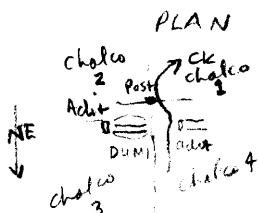 PLAN
Chalco
2
Post
CK
Chalco
1
Adit
NE
DUMP
adit
Chalco 4
Chalco
3